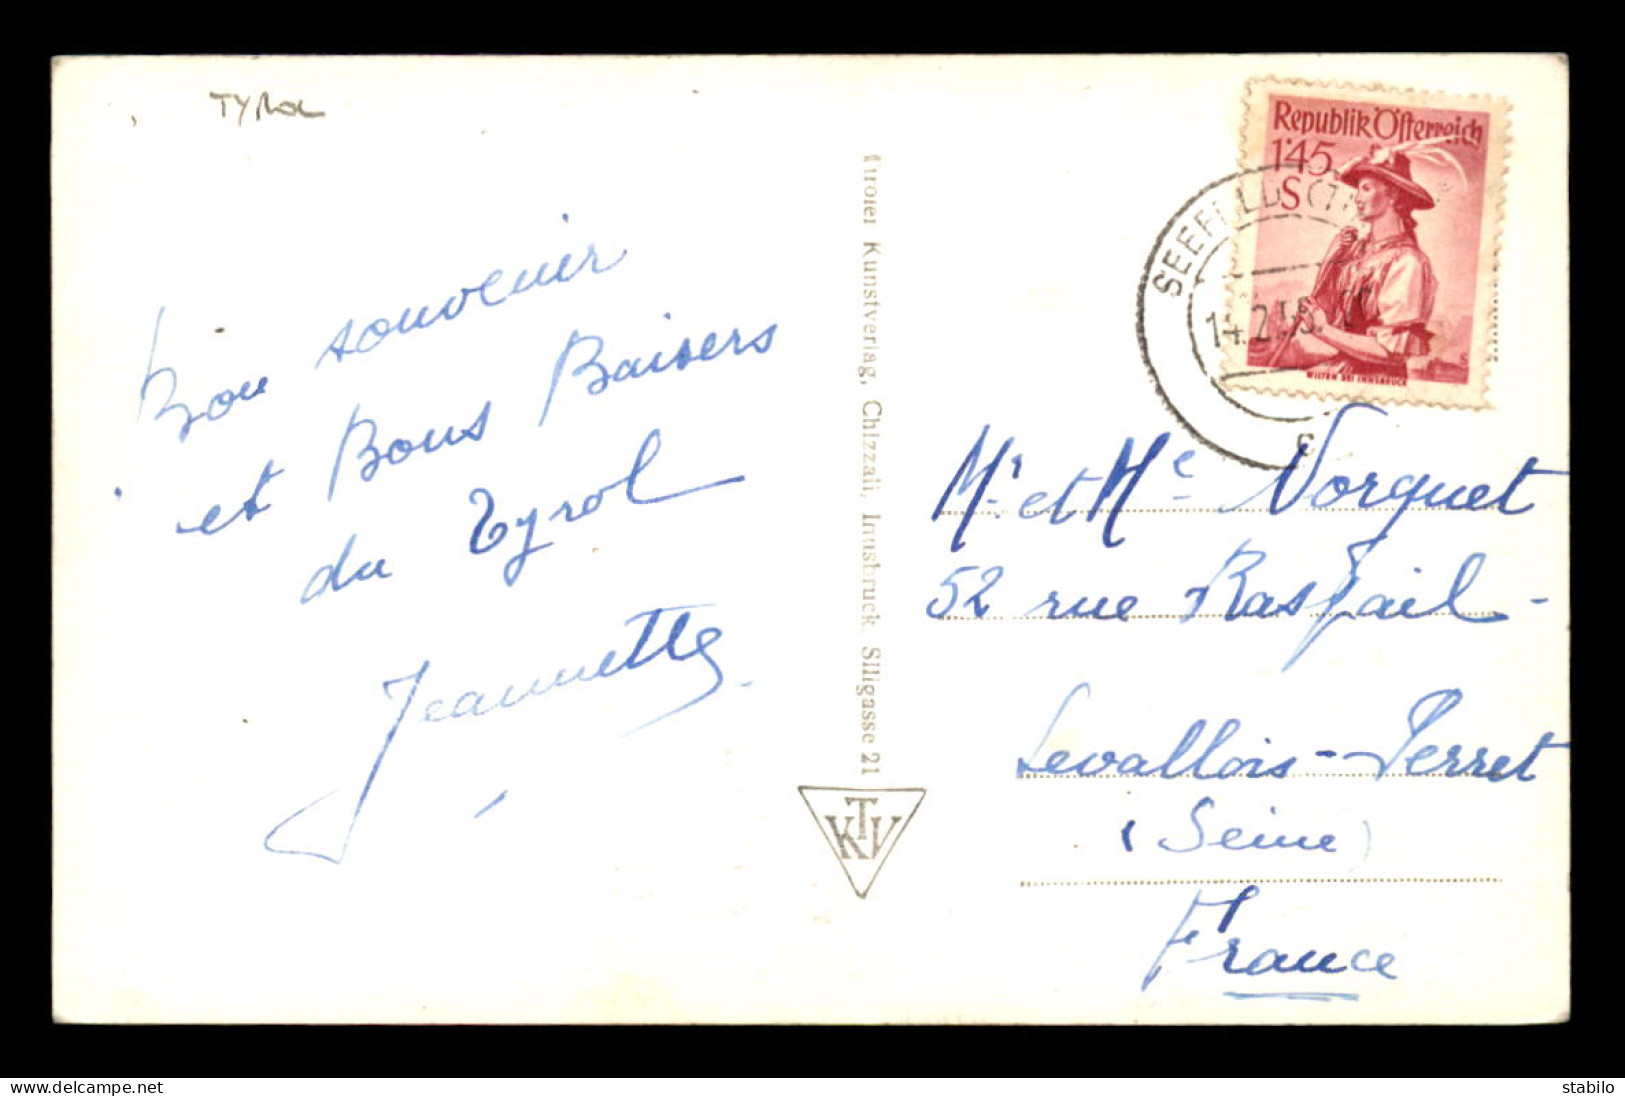 TYROL
Bon souvenir
et Bons Baisers
du Tyrol
Jeannette
Tiroler Kunstverlag, Chizzali, Innsbruck, Sillgasse 21
KTV
Republik Österreich
1'45
S
WILTEN BEI INNSBRUCK
SEEFELD (TI
14.2.55
Mr et Me Vorquet
52 rue Raspail -
Levallois-Perret
(Seine)
France
delcampe.net
stabilo